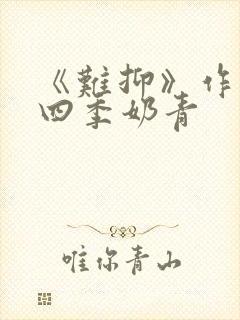 《難抑》作
四季奶青
唯你青山